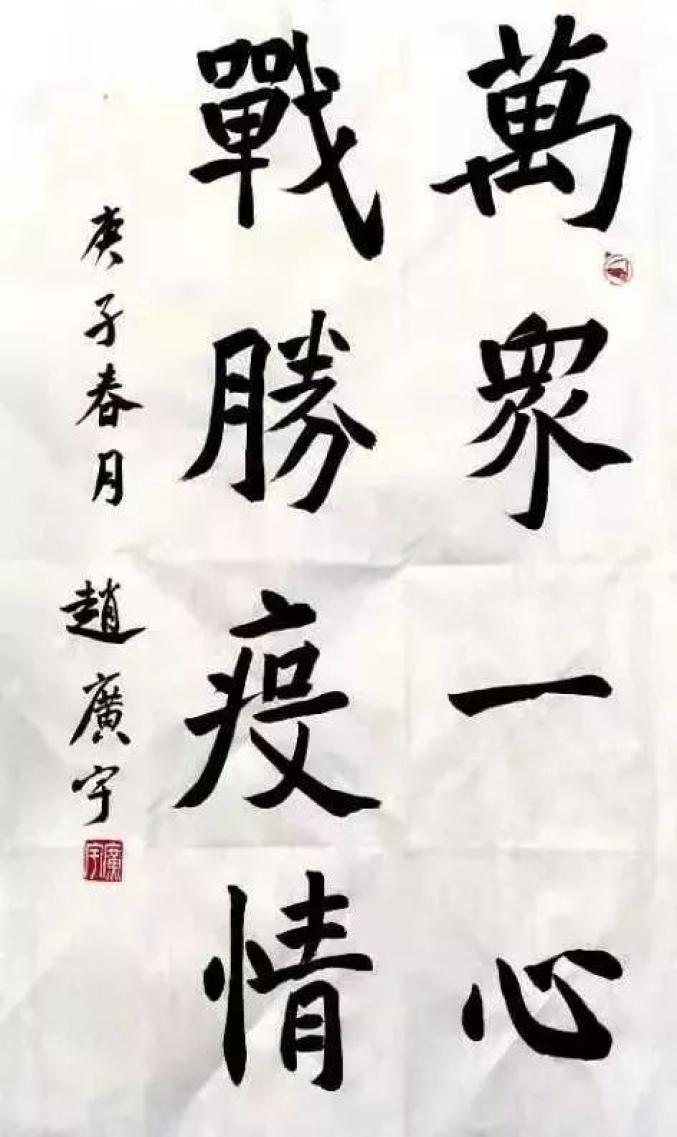 萬眾一心
戰勝疫情
庚子春月 趙廣宇
廣宇